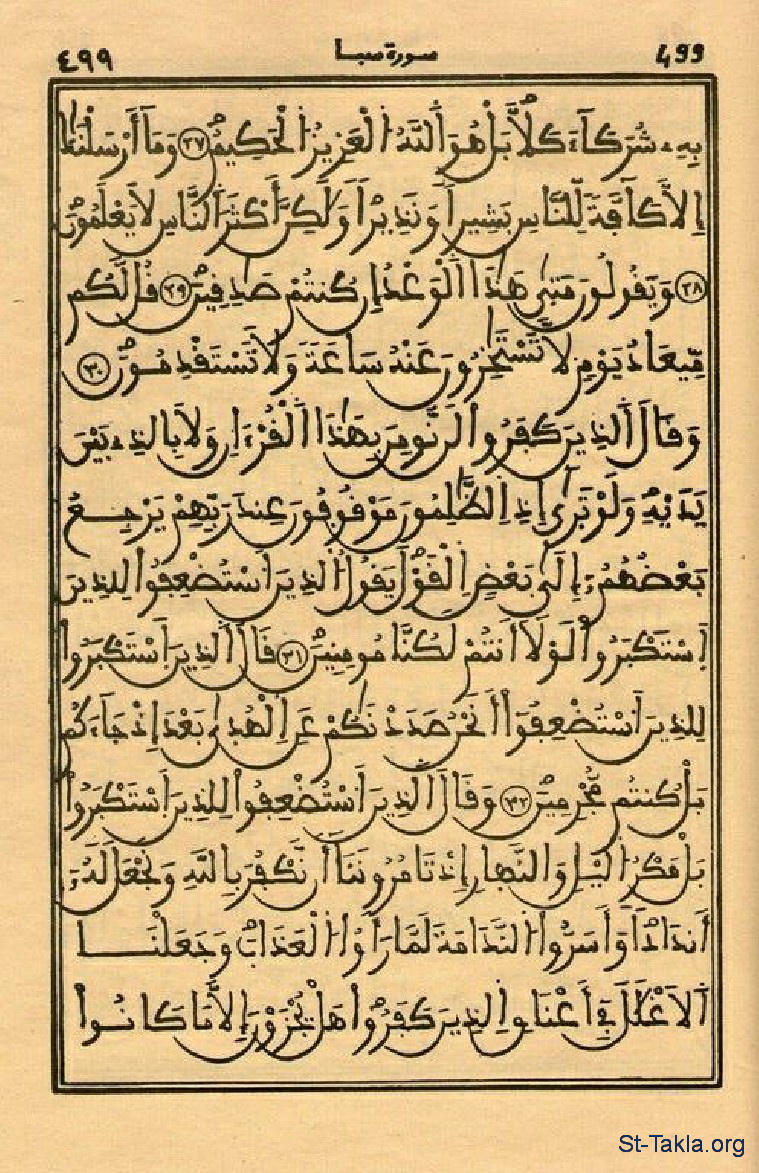 ٤٩٩ سورة سبا 499
بِهِۦ شُرَكَآءَ كَلَّا بَلْ هُوَ اَ۬للَّهُ اُ۬لْعَزِيزُ اُ۬لْحَكِيمُ ٢٧ وَمَآ أَرْسَلْنَٰكَ
إِلَّا كَآفَّةَ لِّلنَّاسِ بَشِيراً وَنَذِيراً وَلَٰكِنَّ أَكْثَرَ اَ۬لنَّاسِ لَا يَعْلَمُونَ
٢٨ وَيَقُولُونَ مَتَىٰ هَٰذَا اَ۬لْوَعْدُ إِن كُنتُمْ صَٰدِقِينَ ٢٩ قُل لَّكُم
مِّيعَادُ يَوْمٍ لَّا تَسْتَٰٔخِرُونَ عَنْهُ سَاعَةً وَلَا تَسْتَقْدِمُونَ ٣٠
وَقَالَ اَ۬لذِينَ كَفَرُوا۟ لَن نُّومِنَ بِهَٰذَا اَ۬لْقُرْءَانِ وَلَا بِالذِے بَيْنَ
يَدَيْهِ وَلَوْ تَرَىٰٓ إِذِ اِ۬لظَّٰلِمُونَ مَوْقُوفُونَ عِندَ رَبِّهِمْ يَرْجِعُ
بَعْضُهُمُۥٓ إِلَىٰ بَعْضٍ اِ۬لْقَوْلَ يَقُولُ اُ۬لذِينَ اَ۟سْتُضْعِفُوا۟ لِلذِينَ
اَ۪سْتَكْبَرُوا۟ لَوْلَآ أَنتُمْ لَكُنَّا مُومِنِينَ ٣١ قَالَ اَ۬لذِينَ اَ۪سْتَكْبَرُوا۟
لِلذِينَ اَ۟سْتُضْعِفُوٓا۟ أَنَحْنُ صَدَدْنَٰكُمْ عَنِ اِ۬لْهُدَىٰ بَعْدَ إِذْ جَآءَكُم
بَلْ كُنتُم مُّجْرِمِينَ ٣٢ وَقَالَ اَ۬لذِينَ اَ۟سْتُضْعِفُوا۟ لِلذِينَ اَ۪سْتَكْبَرُوا۟
بَلْ مَكْرُ اُ۬ليْلِ وَالنَّهارِ إِذْ تَامُرُونَنَآ أَن نَّكْفُرَ بِاللَّهِ وَنَجْعَلَ لَهُۥٓ
أَندَاداً وَأَسَرُّوا۟ اُ۬لنَّدَامَةَ لَمَّا رَأَوُا۟ اُ۬لْعَذَابَ وَجَعَلْنَا
اَ۬لَاغْلَٰلَ فِےٓ أَعْنَاقِ اِ۬لذِينَ كَفَرُوا۟ هَلْ يُجْزَوْنَ إِلَّا مَا كَانُوا۟
St-Takla.org